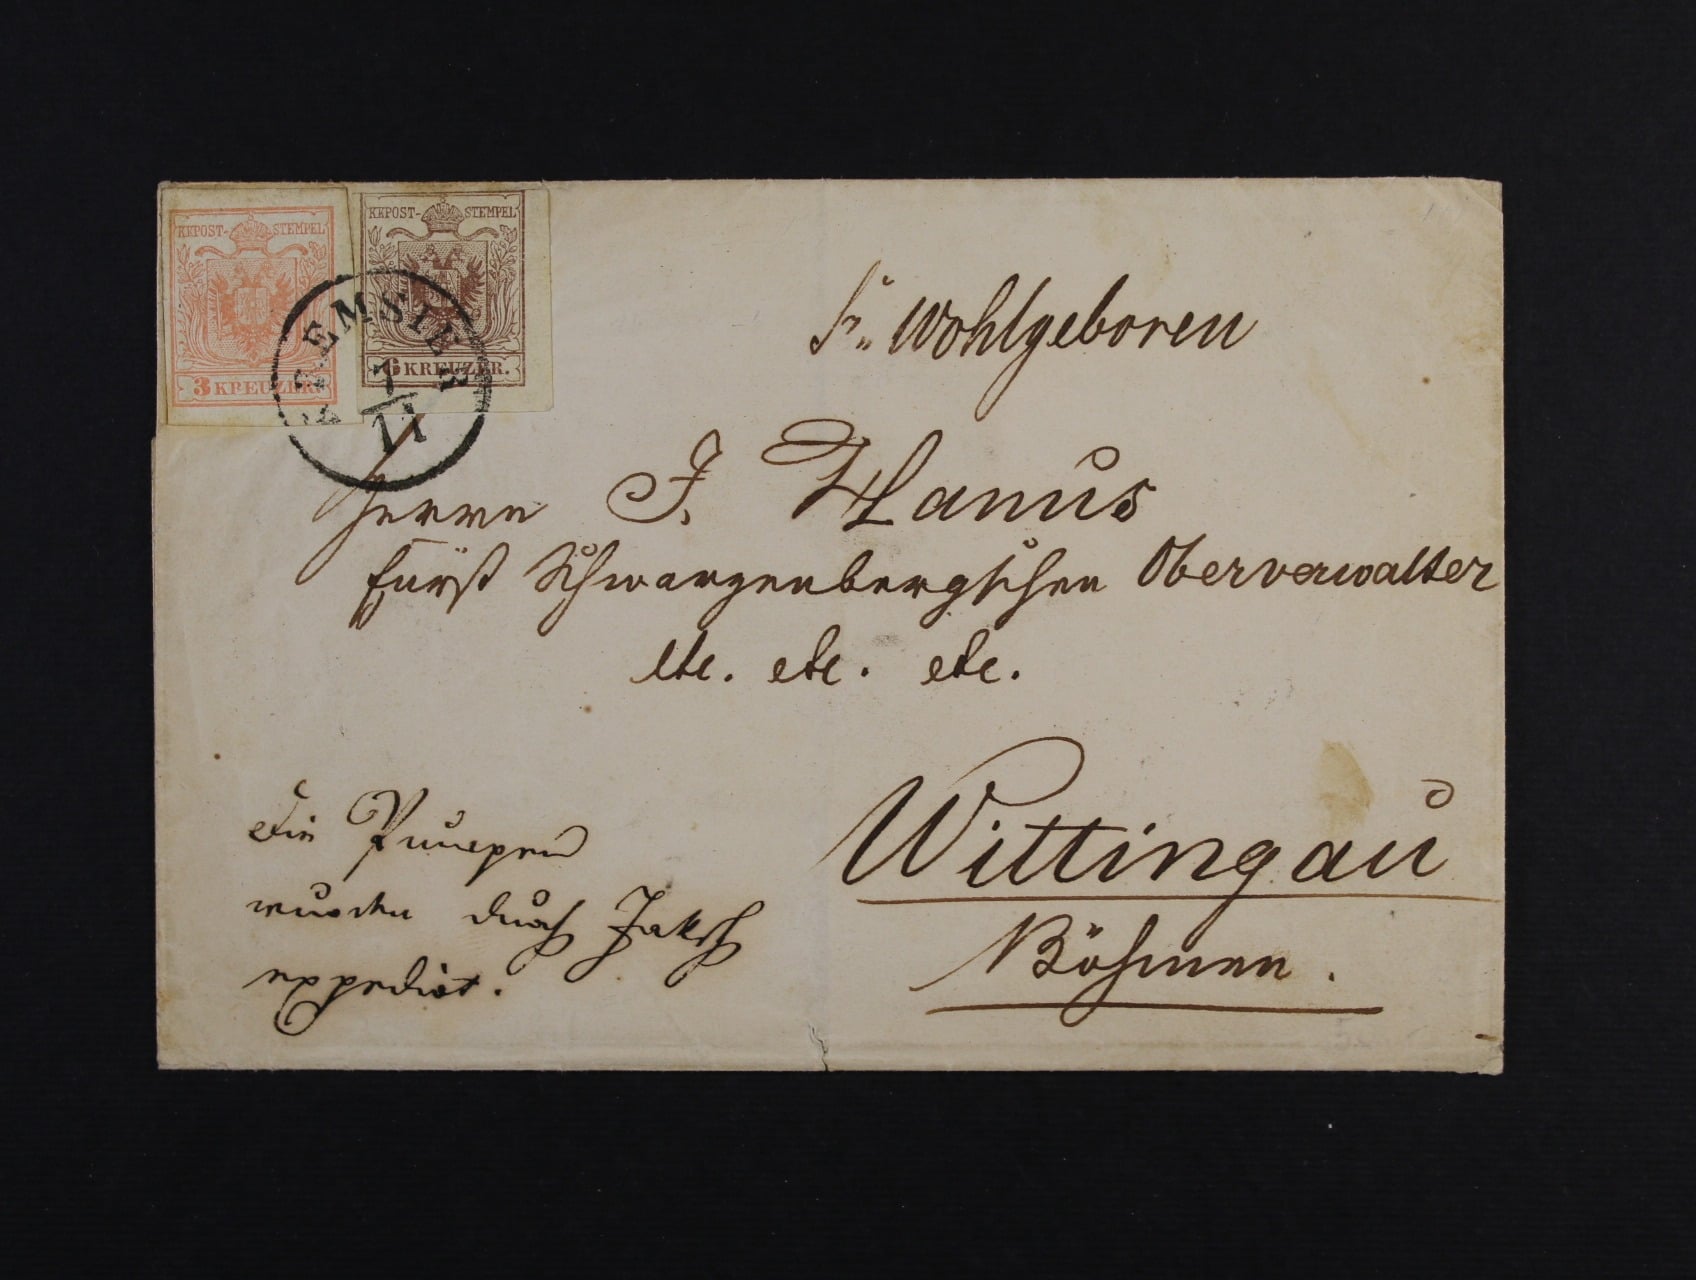 KKPOST-STEMPEL
3 KREUZER.
KKPOST-STEMPEL
6 KREUZER.
KREMSIER
7
11
Sr. Wohlgeboren
Herrn J. Hanus
Fürst Schwarzenbergschen Oberverwalter
etc. etc. etc.
Wittingau
Böhmen.
Die
wurden durch Jaksch
expedirt.